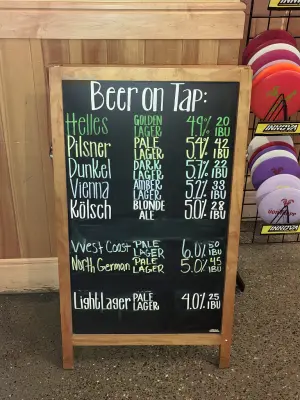 Beer on Tap:
Helles GOLDEN LAGER 4.9% 20 IBU
Pilsner PALE LAGER 5.4% 42 IBU
Dunkel DARK LAGER 5.7% 22 IBU
Vienna AMBER LAGER 5.2% 33 IBU
Kölsch BLONDE ALE 5.0% 28 IBU
West Coast PALE LAGER 6.0% 50 IBU
North German PALE LAGER 5.0% 45 IBU
Light Lager PALE LAGER 4.0% 25 IBU
INNOVA
INNOVA
INNOVA